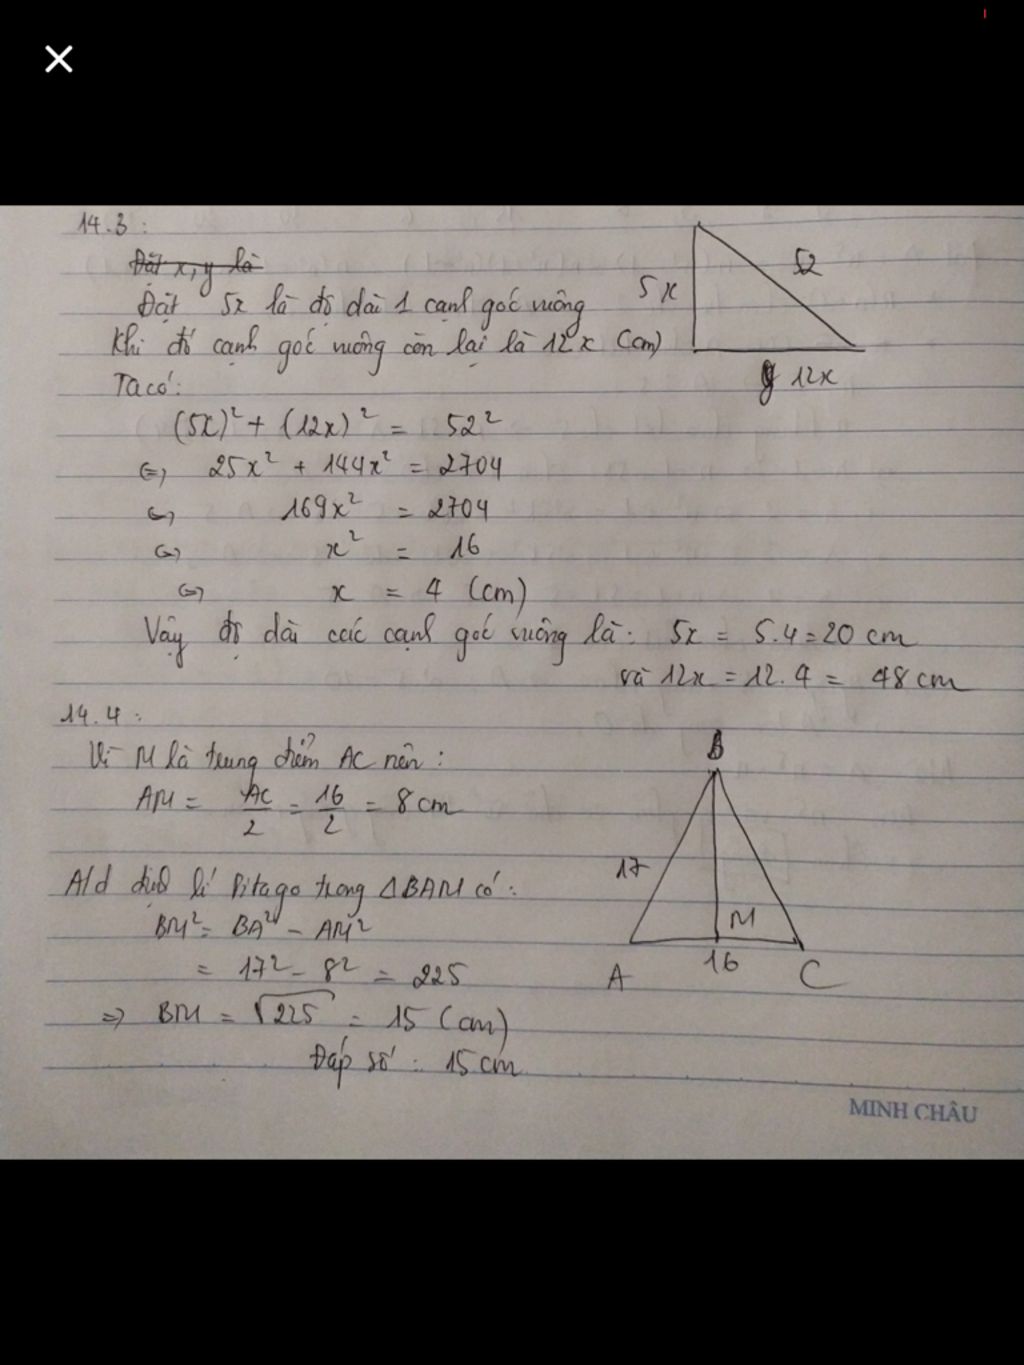 14.3:
Đặt x, y là
Đặt 5x là độ dài 1 cạnh góc vuông
Khi đó cạnh góc vuông còn lại là 12x (cm)
Ta có:
(5x)² + (12x)² = 52²
⇔ 25x² + 144x² = 2704
⇔ 169x² = 2704
⇔ x² = 16
⇔ x = 4 (cm)
Vậy độ dài các cạnh góc vuông là: 5x = 5.4 = 20 cm
và 12x = 12.4 = 48 cm
5x
52
12x
14.4:
Vì M là trung điểm AC nên:
AM = AC/2 = 16/2 = 8 cm
A/d định lí Pitago trong ΔBAM có:
BM² = BA² - AM²
= 17² - 8² = 225
⇒ BM = √225 = 15 (cm)
Đáp số: 15 cm
B
17
M
A
16
C
MINH CHÂU